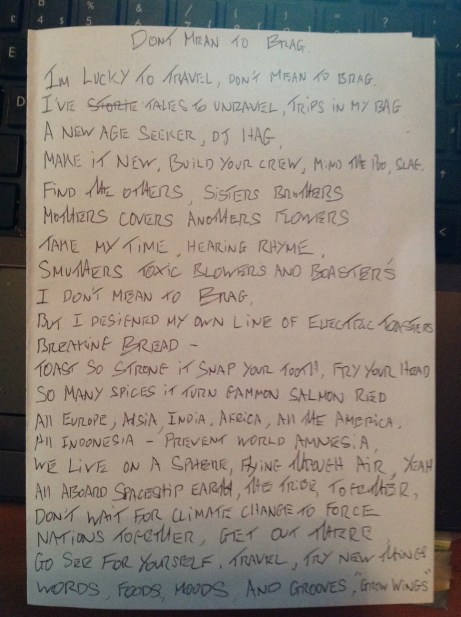 DONT MEAN TO BRAG.
IM LUCKY TO TRAVEL, DON'T MEAN TO BRAG.
I'VE STORIE TALES TO UNRAVEL, TRIPS IN MY BAG
A NEW AGE SEEKER, DJ HAG,
MAKE IT NEW, BUILD YOUR CREW, MIND THE SLAG.
FIND THE OTHERS, SISTERS BROTHERS
MOTHERS COVERS ANOTHERS FLOWERS
TAKE MY TIME, HEARING RHYME,
SMUTHERS TOXIC BLOWERS AND BOASTERS
I DON'T MEAN TO BRAG,
BUT I DESIGNED MY OWN LINE OF ELECTRIC TOASTERS
BREAKING BREAD -
TOAST SO STRONG IT SNAP YOUR TOOTH, FRY YOUR HEAD
SO MANY SPICES IT TURN GAMMON SALMON RED
All EUROPE, ASIA, INDIA, AFRICA, All THE AMERICA.
All INDONESIA - PREVENT WORLD AMNESIA,
WE LIVE ON A SPHERE, FLYING THROUGH AIR, YEAH
All ABOARD SPACESHIP EARTH, THE TRIBE, TOGETHER,
DON'T WAIT FOR CLIMATE CHANGE TO FORCE
NATIONS TOGETHER, GET OUT THERE
GO SEE FOR YOURSELF, TRAVEL, TRY NEW THINGS
WORDS, FOODS, MOODS, AND GROOVES, "GROW WINGS"